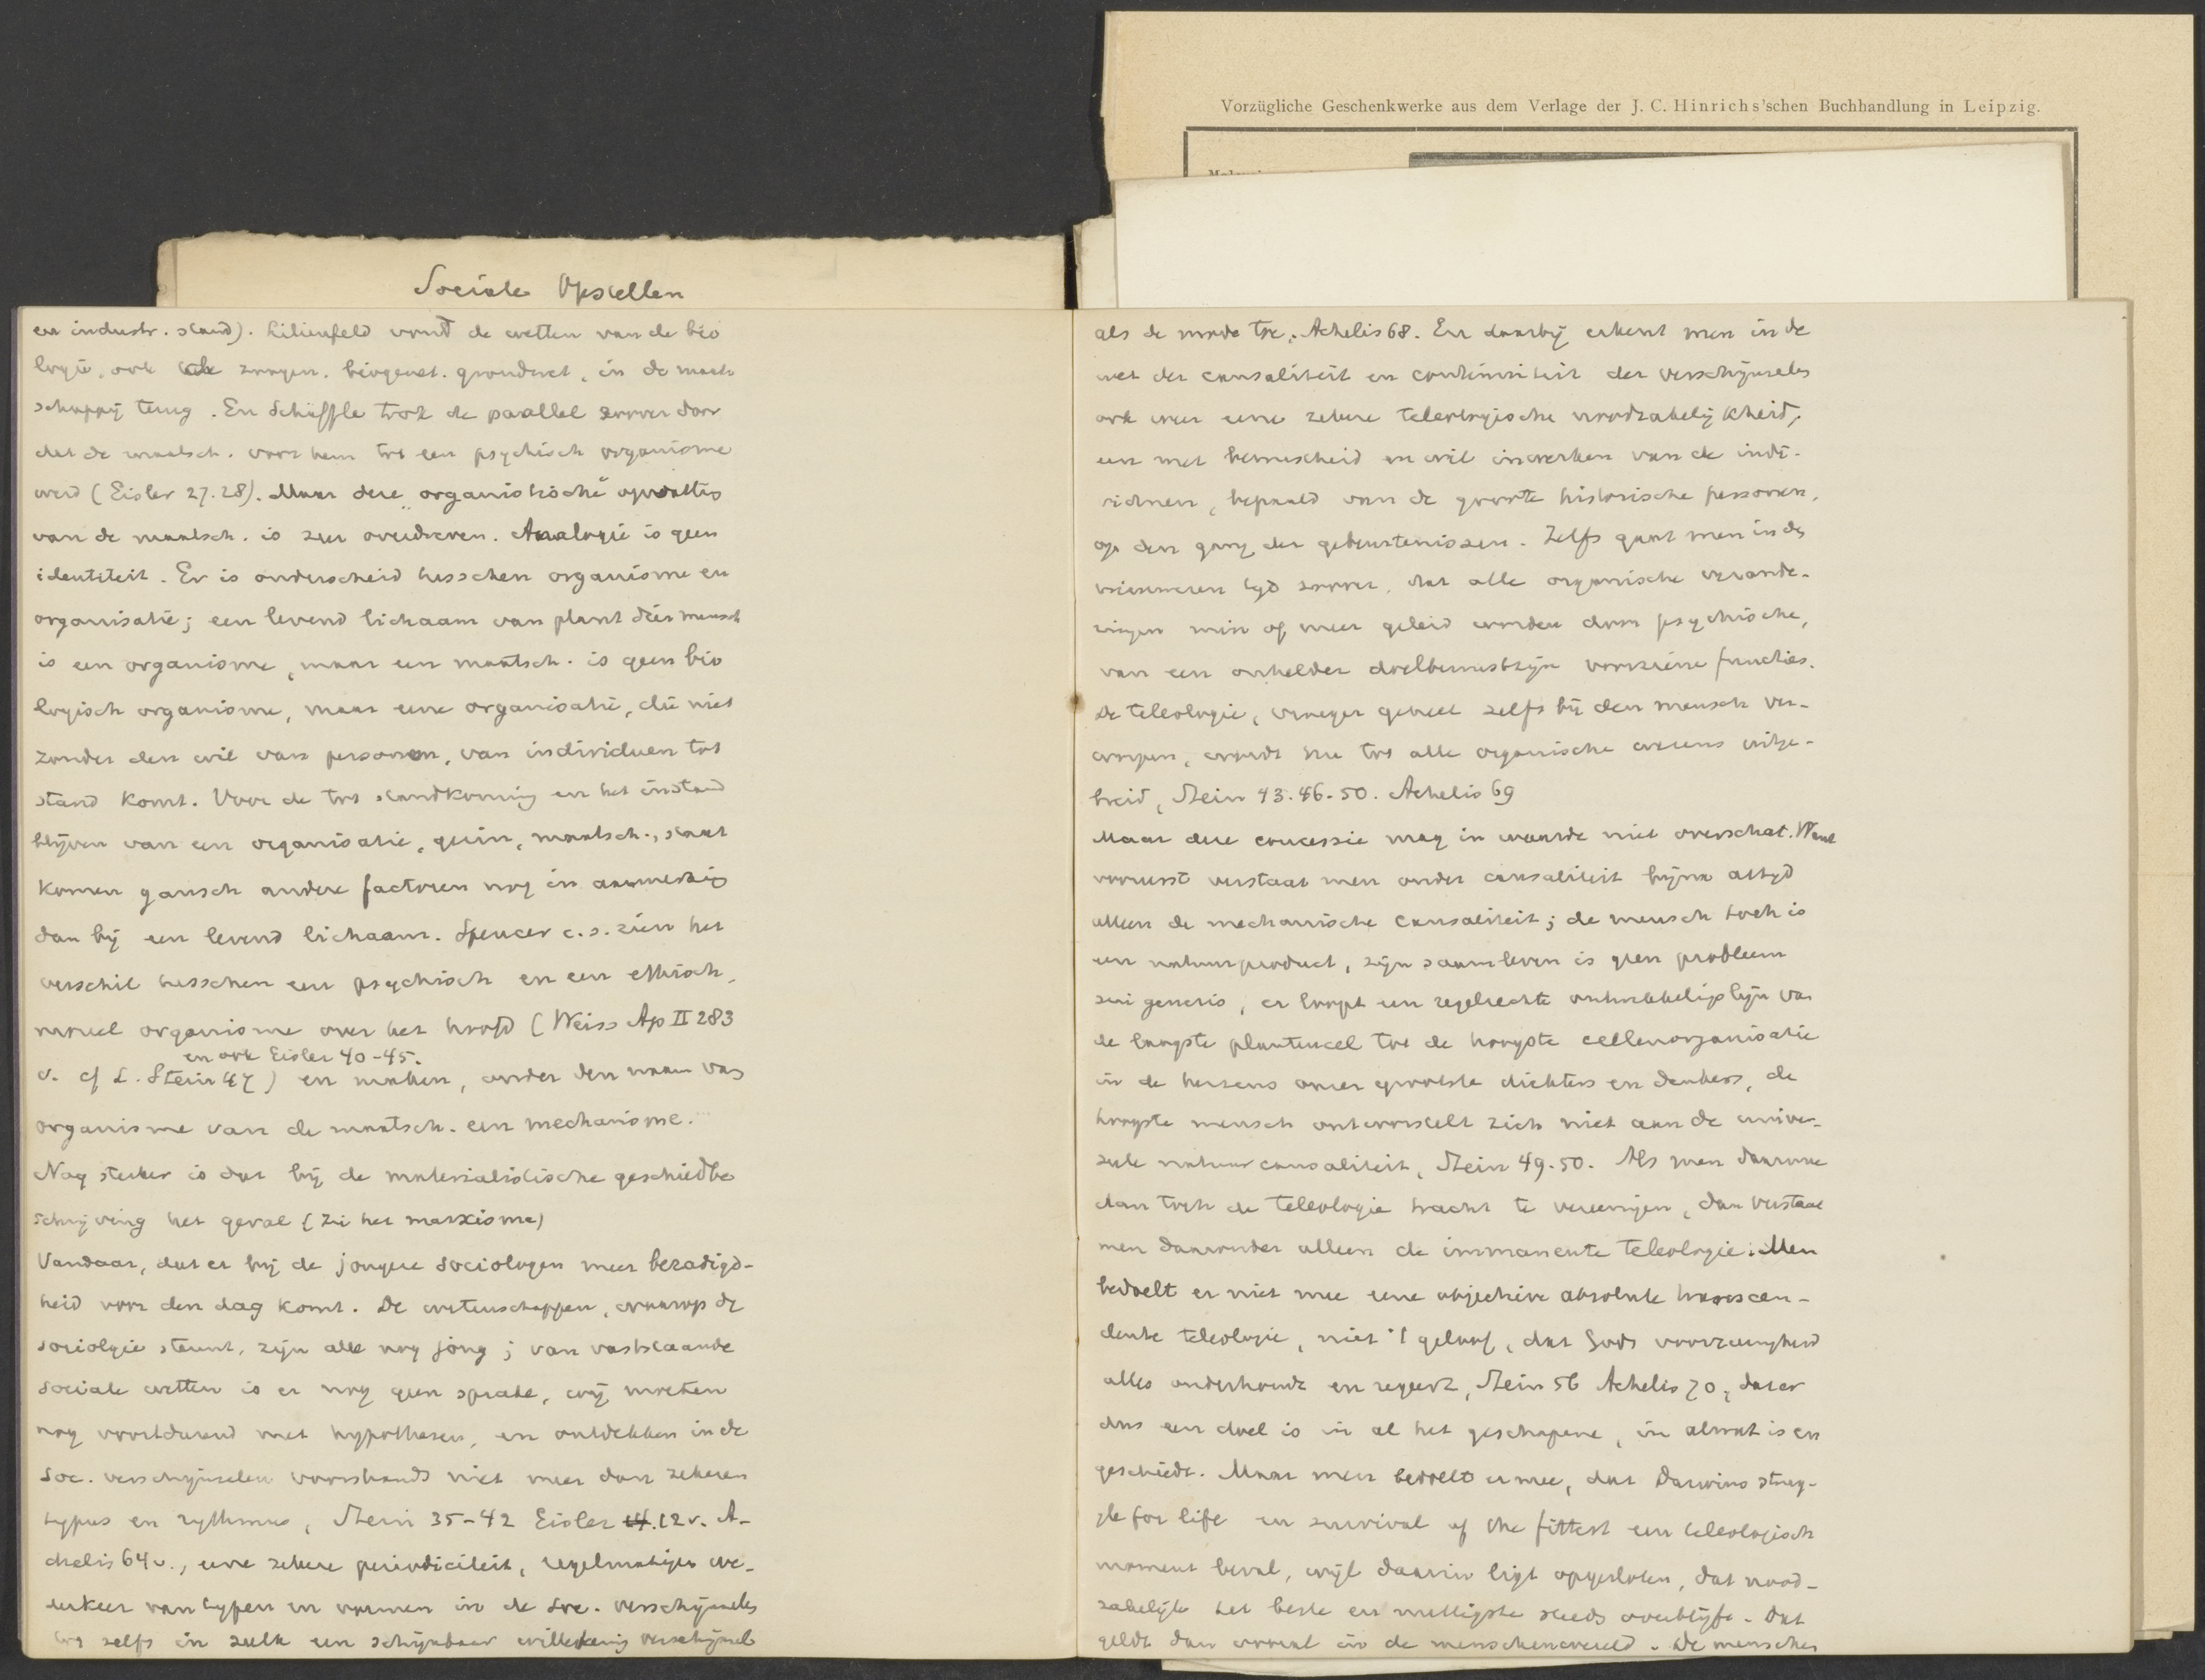 Vorzügliche Geschenkwerke aus dem Verlage der J. C. Hinrichs'schen Buchhandlung in Leipzig.
Sociale Opstellen
en industr. stand). Lilienfeld vond de wetten van de bio
logie, ook zoogen. biogenet. grondwet, in de maat
schappij terug. En Schäffle trok de parallel zoover door
dat de maatsch. voor hem tot een psychisch organisme
werd (Eisler 27.28). Maar deze „organistische" opvatting
van de maatsch. is zeer overdreven. Analogie is geen
identiteit. Er is onderscheid tusschen organisme en
organisatie; een levend lichaam van plant dier mensch
is een organisme, maar een maatsch. is geen bio
logisch organisme, maar eene organisatie, die niet
zonder den wil van personen, van individuen tot
stand komt. Voor de tot standkoming en het instand
blijven van een organisatie, gezin, maatsch., staat
komen gansch andere factoren nog in aanmerking
dan bij een levend lichaam. Spencer c.s. zien het
verschil tusschen een psychisch en een ethisch,
moreel organisme over het hoofd (Weiss Ap II 283
en ook Eisler 40-45.
v. cf L. Stein 47) en maken, onder den naam van
organisme van de maatsch. een mechanisme.
Nog sterker is dat bij de materialistische geschiedbe
schrijving het geval (zie het marxisme)
Vandaar, dat er bij de jongere sociologen meer bezadigd-
heid voor den dag komt. De wetenschappen, waarop de
sociolgie steunt, zijn alle nog jong; van vaststaande
sociale wetten is er nog geen sprake, wij werken
nog voortdurend met hypothesen, en ontdekken in de
soc. verschijnselen voorshands niet meer dan zekeren
typus en rythmus, Stein 35-42 Eisler 14.12v. A-
chelis 64v., eene zekere periodiciteit, regelmatigen we-
derkeer van typen en vormen in de soc. verschijnselen
tot zelfs in zulk een schijnbaar willekeurig verschijnsel
als de mode toe. Achelis 68. En daarbij erkent men in de
wet der causaliteit en continuiteit der verschijnselen
ook weer eene zekere teleologische noodzakelijkheid,
een met bewustheid en wil inwerken van de indi-
viduen, bepaald van de groote historische personen,
op den gang der gebeurtenissen. Zelfs gaat men in de
nieuweren tijd zoover, dat alle organische verande-
ringen min of meer geleid worden door psychische,
van een onhelder doelbewustzijn voorziene functies.
De teleologie, vroeger geheel zelfs bij den mensch ver-
worpen, wordt nu tot alle organische wezens uitge-
breid, Stein 43.46-50. Achelis 69
Maar deze concessie mag in waarde niet overschat. Want
vooreerst verstaat men onder causaliteit bijna altijd
alleen de mechanische causaliteit; de mensch toch is
een natuurproduct, zijn saamleven is geen probleem
sui generis, er loopt een regelrechte ontwikkelingslijn van
de laagste plantencel tot de hoogste cellenorganisatie
in de hersens onzer grootste dichters en denkers, de
hoogste mensch ontworstelt zich niet aan de univer-
seele natuurcausaliteit, Stein 49.50. Als men daarmee
dan toch de teleologie tracht te vereenigen, dan verstaat
men daaronder alleen de immanente teleologie: Men
bedoelt er niet mee eene objectieve absolute transcen-
dente teleologie, niet 't geloof, dat Gods voorzienigheid
alles onderhoudt en regeert, Stein 56 Achelis 70, dat er
dus een doel is in al het geschapene, in al wat is en
geschiedt. Maar men bedoelt er mee, dat Darwins strug-
gle for life en survival of the fittest een teleologisch
moment bevat, wijl daarin ligt opgesloten, dat nood-
zakelijk het beste en nuttigste steeds overblijft. Dat
geldt dan vooral in de menschenwereld. De menschen